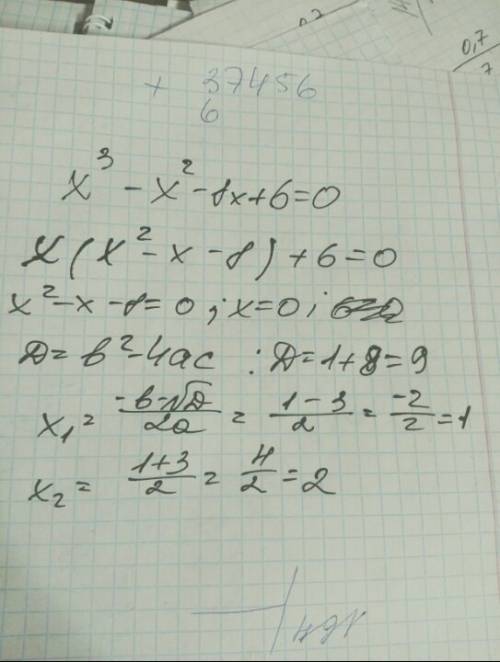 0,7
7
+ 37456
6
x³ - x² - 8x + 6 = 0
x(x² - x - 8) + 6 = 0
x² - x - 8 = 0 ; x = 0 ;
D = b² - 4ac : D = 1 + 8 = 9
x₁ = (-b - √D)/2a = (1 - 3)/2 = -2/2 = 1
x₂ = (1 + 3)/2 = 4/2 = 2